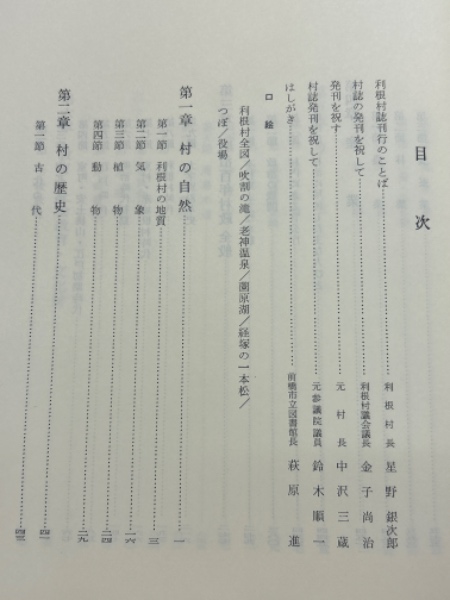 目次
利根村誌刊行のことば………利根村長 星野銀次郎
村誌の発刊を祝して………利根村議会議長 金子尚治
発刊を祝す………元村長 中沢三蔵
村誌発刊を祝して………元参議院議員 鈴木順一
はしがき………前橋市立図書館長 萩原進
口絵
利根村全図/吹割の滝/老神温泉/薗原湖/経塚の一本松/
つぼ/役場
第一章 村の自然………一
第一節 利根村の地質………三
第二節 気象………一六
第三節 植物………二四
第四節 動物………二九
第二章 村の歴史………四一
第一節 古代………四三